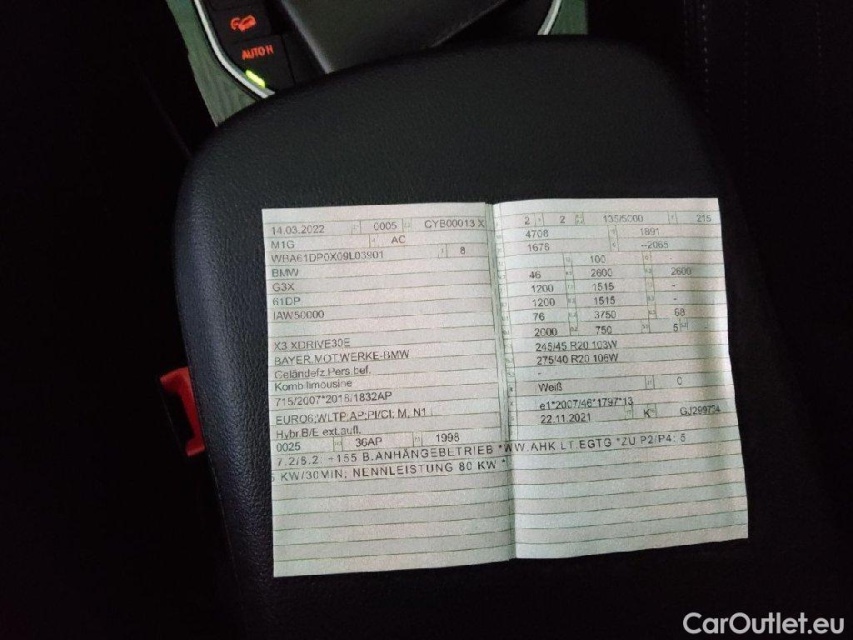 AUTO H
14.03.2022 0005 CYB00013 X
M1G AC
WBA61DP0X09L03901 8
BMW
G3X
61DP
IAW50000
X3 XDRIVE30E
BAYER.MOT.WERKE-BMW
Geländefz.Pers.bef.
Kombilimousine
715/2007*2018/1832AP
EURO6;WLTP;AP;PI/CI; M, N1 I
Hybr.B/E ext.aufl.
0025 36AP 1998
2 2 135/5000 215
4708 1891
1676 --2065
100
46 2600 2600
1200 1515 -
1200 1515 -
76 3750 68
2000 750 5
245/45 R20 103W
275/40 R20 106W
-
Weiß 0
e1*2007/46*1797*13
22.11.2021 K GJ299734
7.2/8.2: +155 B.ANHÄNGEBETRIEB *WW.AHK LT.EGTG *ZU P2/P4: 6
KW/30MIN; NENNLEISTUNG 80 KW *
CarOutlet.eu